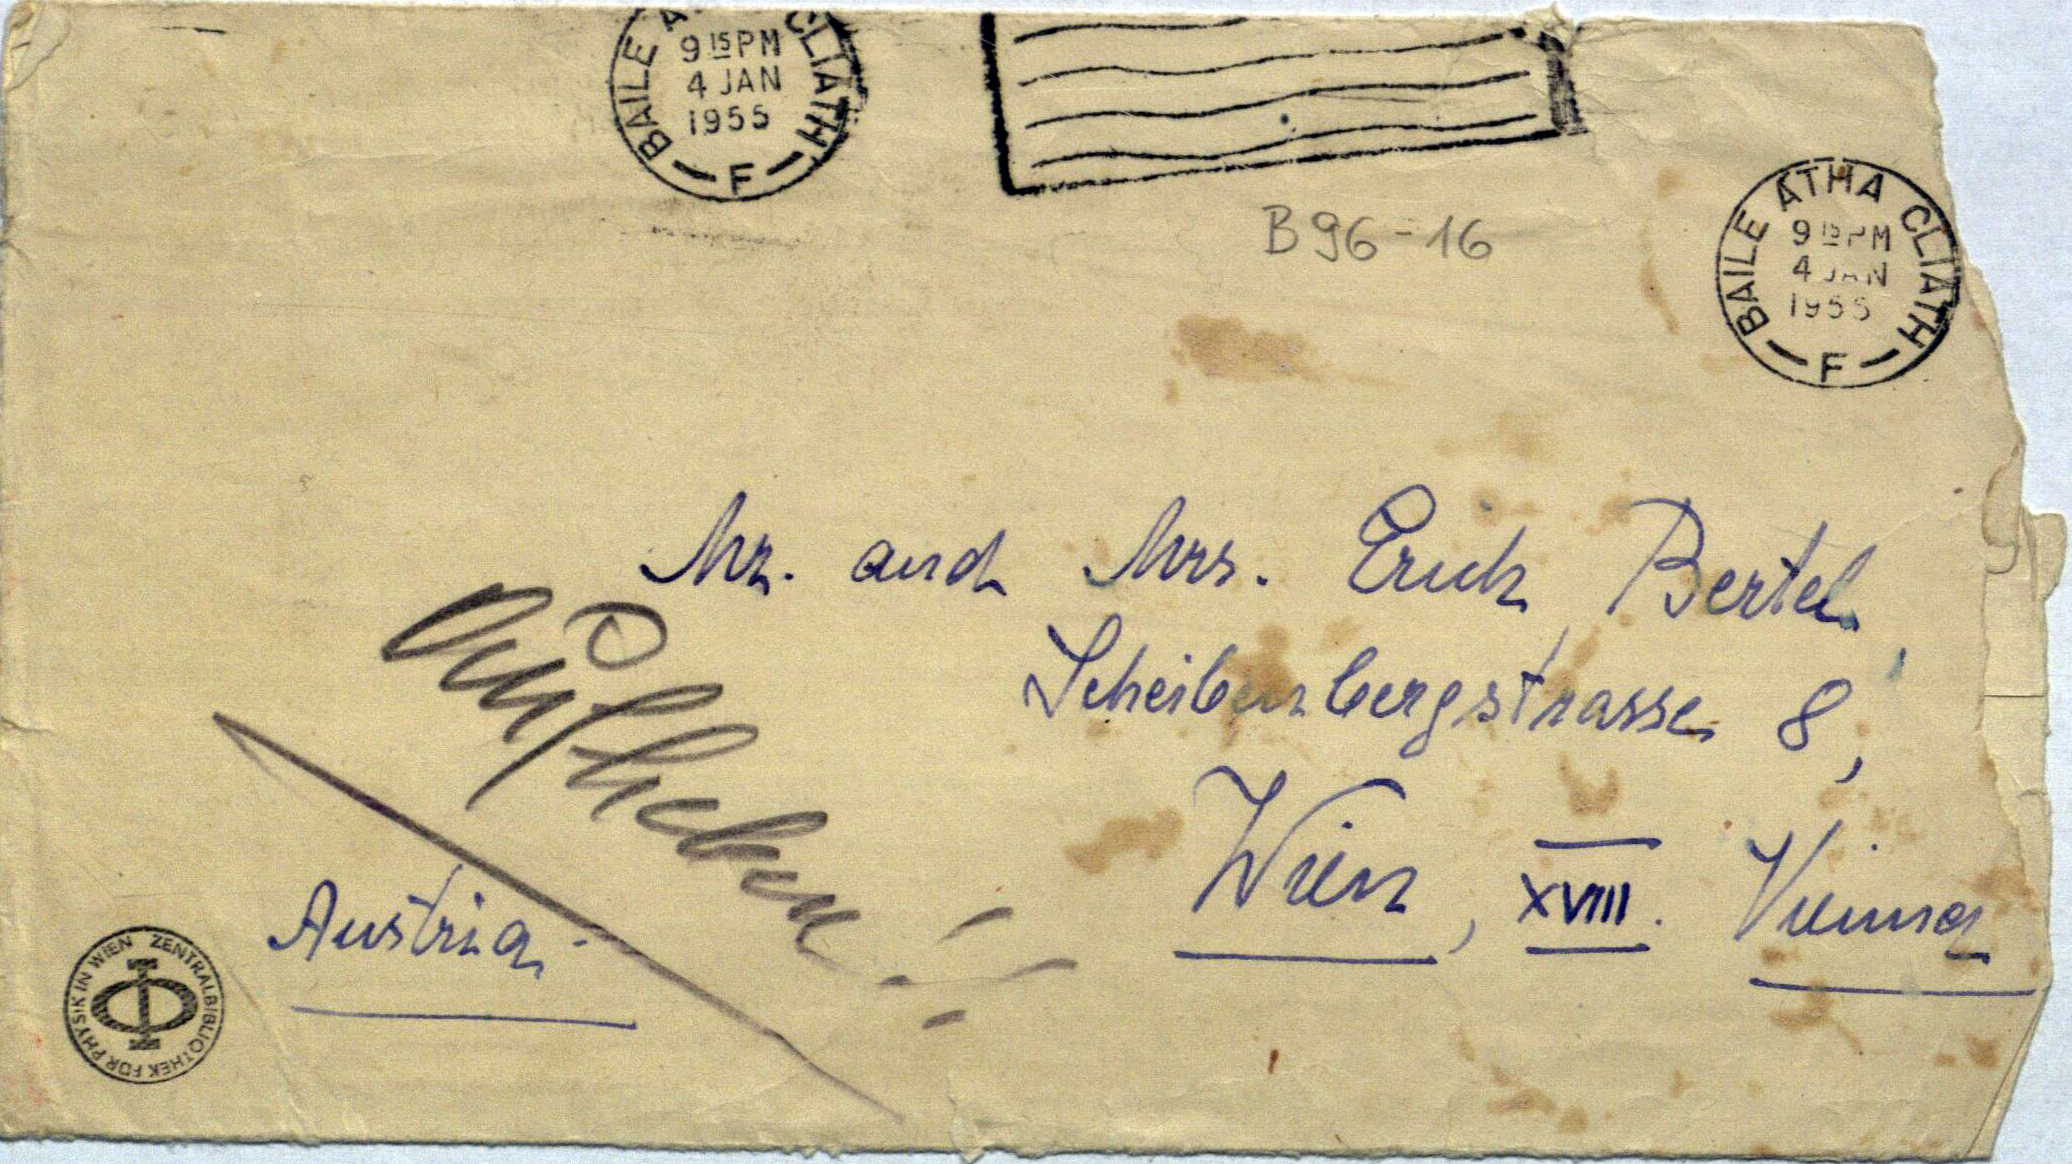 BAILE ÁTHA CLIATH
9 15 PM
4 JAN
1955
F
B96-16
BAILE ÁTHA CLIATH
9 15 PM
4 JAN
1955
F
Mr. and Mrs. Erich Bertel,
Scheibenbergstrasse 8,
Wien, XVIII. Vienna
Aufheben!!
Austria.
ZENTRALBIBLIOTHEK FÜR PHYSIK IN WIEN